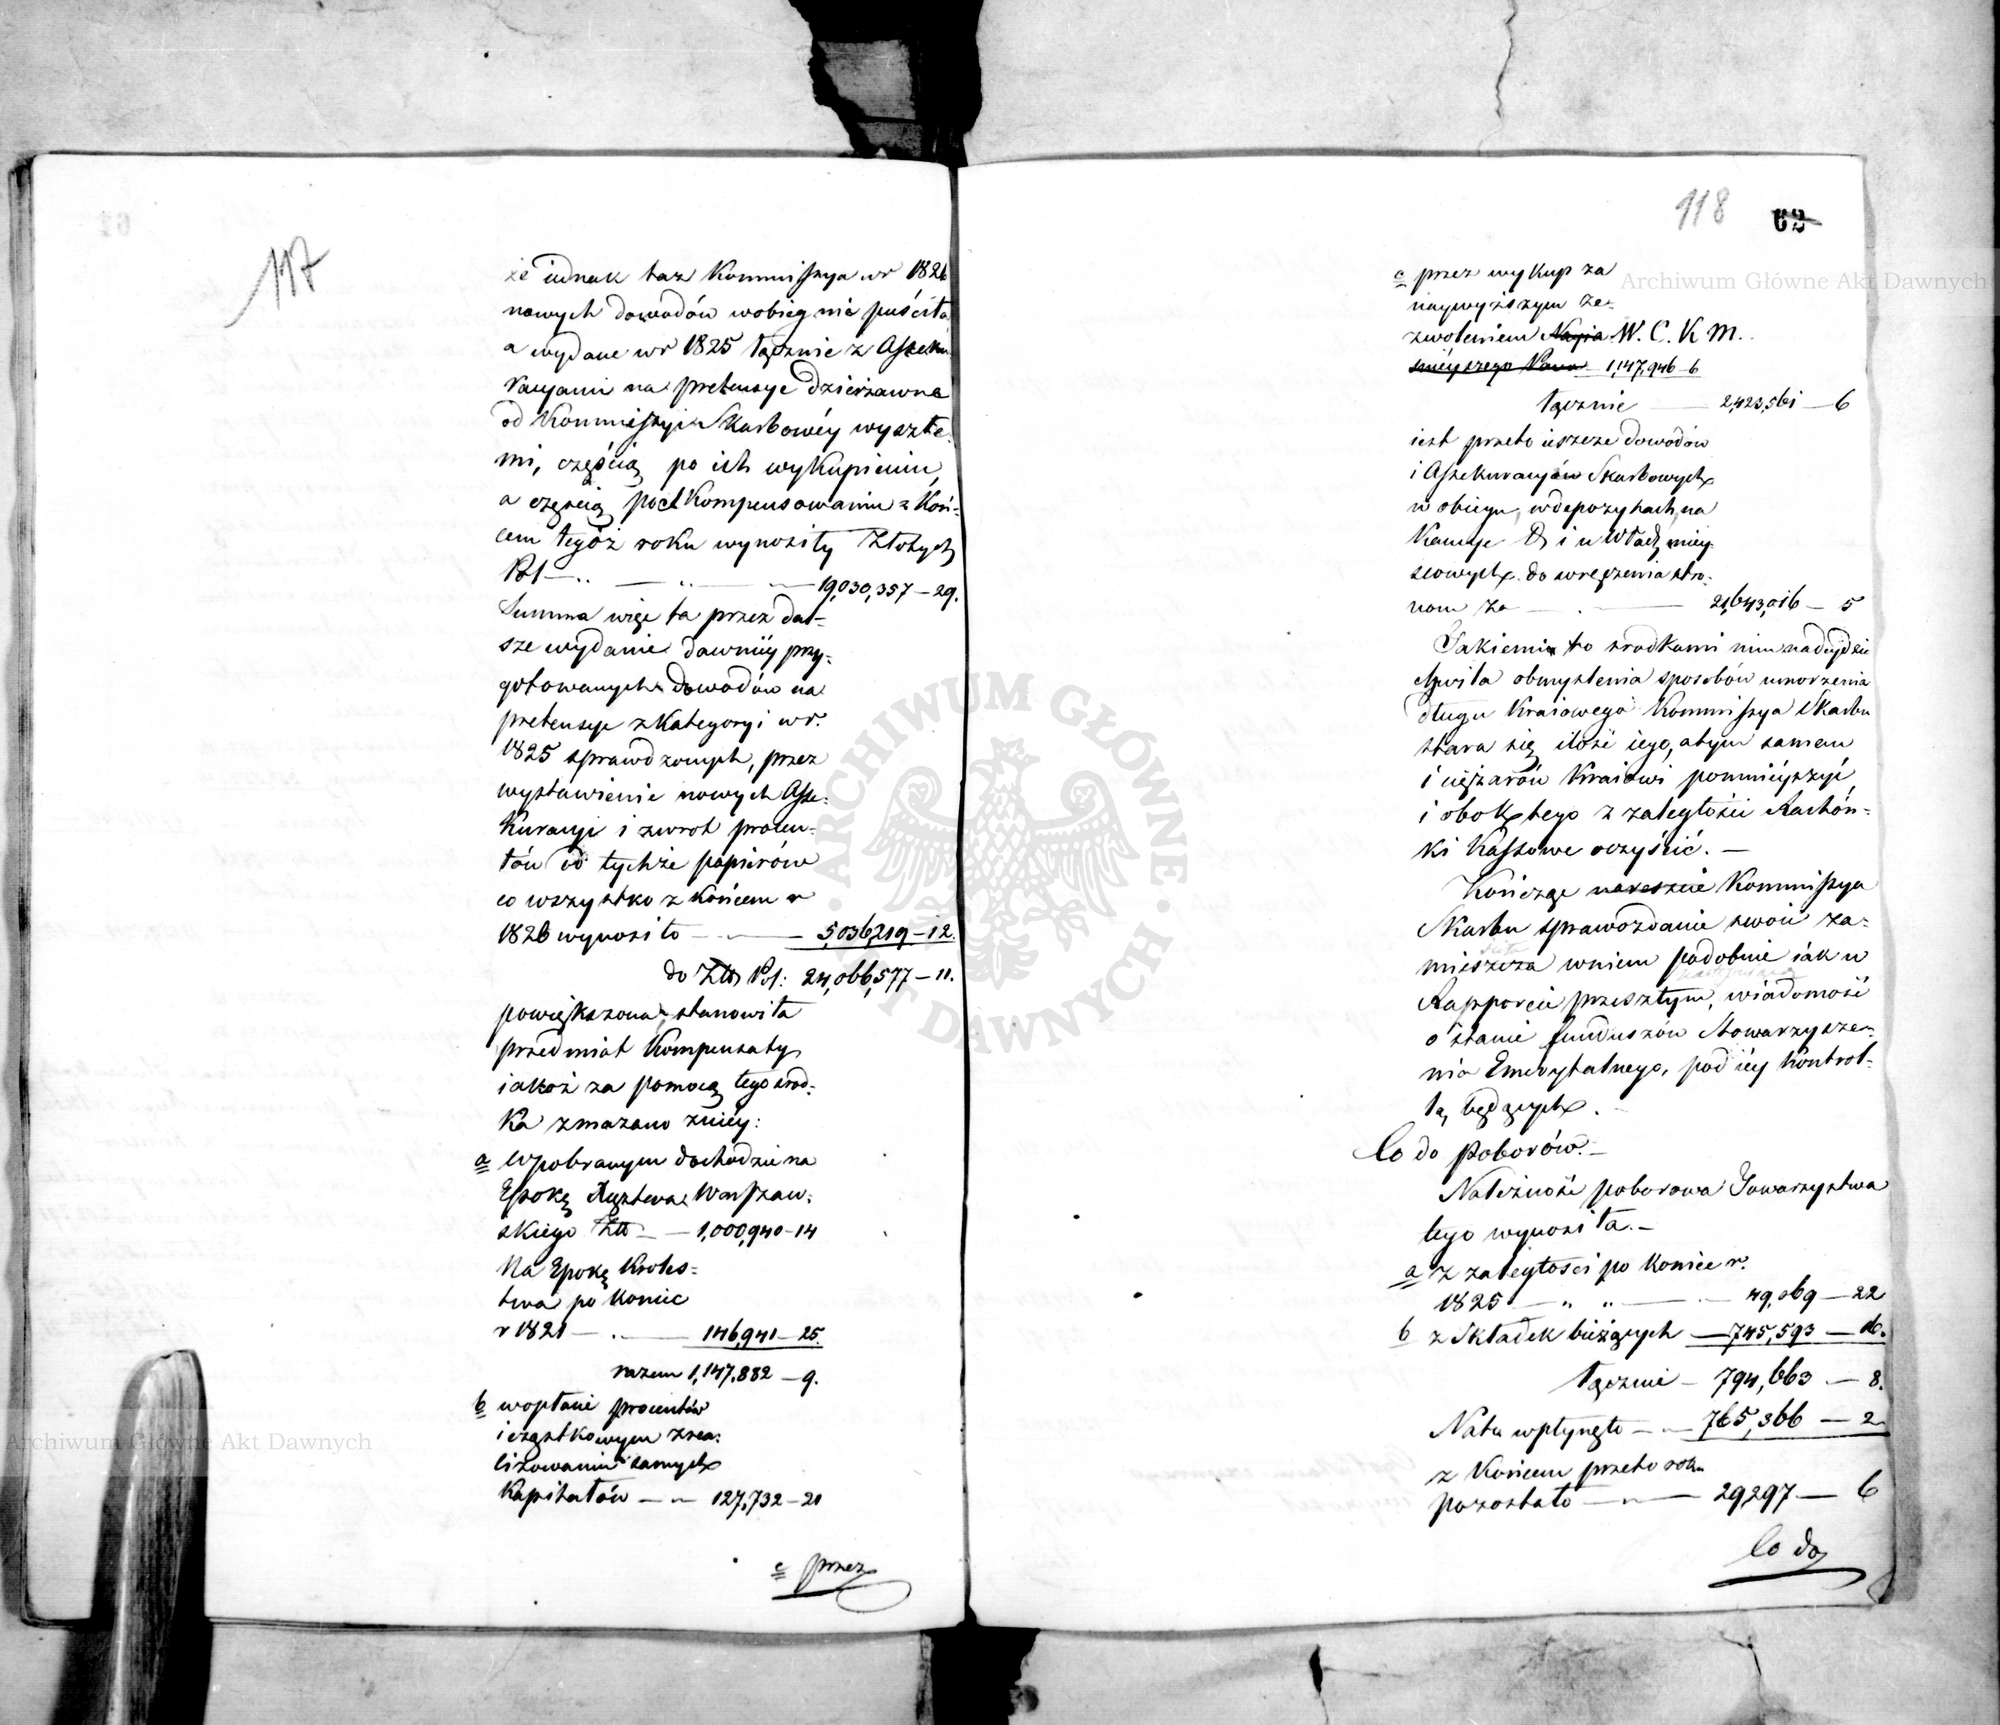 117
że iednak taż Kommissya w r 1826
nowych dowodów w obieg nie puściła
a wydane w r 1825 łącznie z Assekur
racyami na pretensye dzierżawne
od Kommissyi Skarbowéy wyszłe-
mi, częścią po ich wykupieniu,
a częścią po skompensowaniu z Koń-
cem tegóż roku wynosiły Złotych
Pol — „ — „ — 19,030,357 — 29.
Summa więc ta przez dal-
sze wydanie dawniéy przy-
gotowanych dowodów na
pretensye z Kategoryi w r.
1825 sprawdzonych, przez
wystawienie nowych Asse-
kuracyi i zwrot procen-
tów od tychże papierów
co wszystko z Końcem r
1826 wynosiło — 5,036,219 — 12.
do Złt Pol: 24,066,577 — 11.
powiększona, stanowiła
przedmiot Kompensaty,
iakoż za pomocą tego środ-
ka zmazano zniéy:
a w pobranym dochodzie na
Epokę Xięztwa Warszaw-
skiego Złt — 1,000,940 — 14
Na Epokę Króles-
twa po koniec
r 1821 — . — 146,941 — 25.
razem 1,147,882 — 9.
b w opłacie procentów
i cząstkowym zrea-
lizowaniu samych
Kapitałów — „ — 127,732 — 21
c przez
118 62
c przez wykup za
naywyższym ze-
zwoleniem Nayia. W. C. K M.
śnieyszego Pana 1,147,946 — 6
łącznie — 2,423,561 — 6
iest przeto ieszcze dowodów
i Assekuracyów Skarbowych
w obiegu, w depozytach, na
Kaucye & i u Władz miey-
scowych do wręczenia stro-
nom za — . — 21,643,016 — 5
Takiemi to srodkami nim nadeydzie
chwila obmyślenia sposobów umorzenia
długu Kraiowego Kommissya Skarbu
stara się ilość iego, a tym samem
i ciężarów Kraiowi pomnieyszyć
i obok tego z zaległości Rachón-
ki Kassowe oczyścić. —
Kończąc nareszcie Kommissya
Skarbu sprawozdanie swoie za-
mieszcza w niem podobnie iak w
Rapporcie przeszłym, wiadomość
o stanie funduszów Stowarzysze-
nia Emerytalnego, pod iéy Kontrol-
lą będących. —
Co do Poborów. —
Należność poborowa Towarzystwa
tego wynosiła. —
a z zaległości po koniec r.
1825 — „ „ — 49,069 — 22
b z Składek bieżących — 745,593 — 16.
łącznie — 794,663 — 8.
Na to wpłynęło — „ — 765,366 — 2
z Końcem przeto roku
pozostało — „ — 29,297 — 6
Co do
ARCHIWUM GŁÓWNE · AKT DAWNYCH ·
Archiwum Główne Akt Dawnych
Archiwum Główne Akt Dawnych